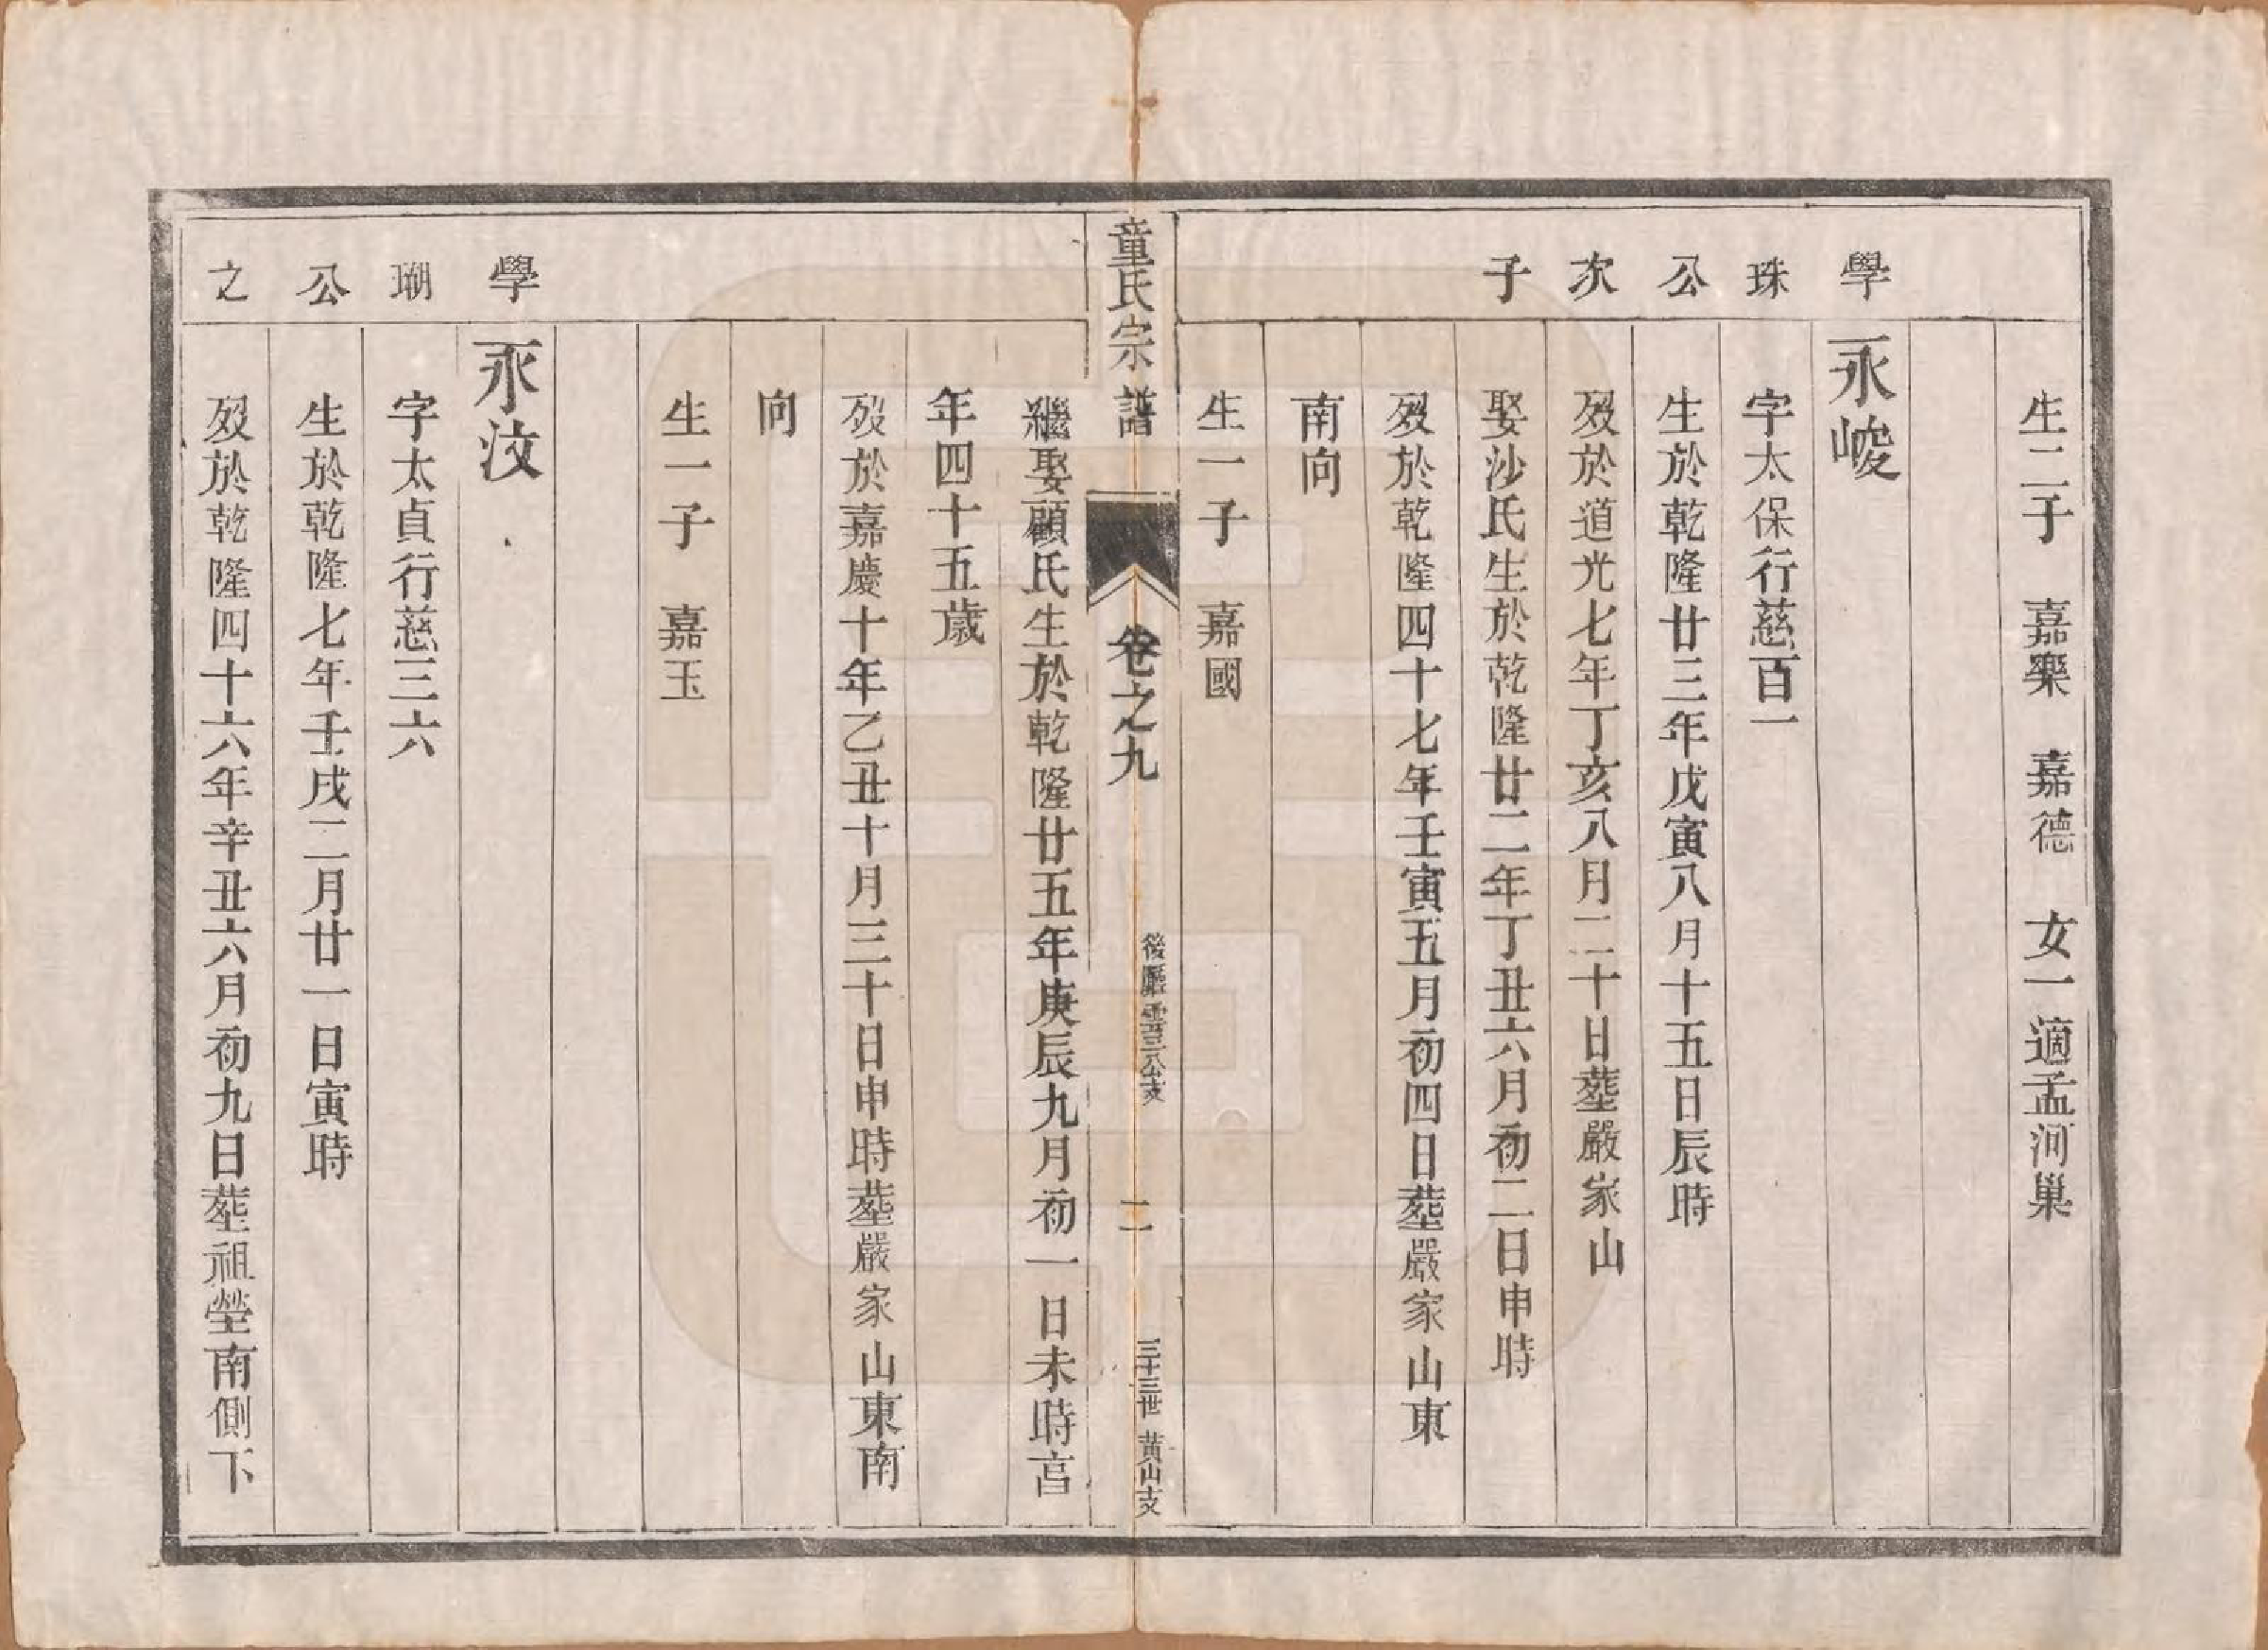 生二子　嘉樂　嘉德　女一適孟河巢
學珠公次子
永峻
字太保行慈百一
生於乾隆廿三年戊寅八月十五日辰時
歿於道光七年丁亥八月二十日塟嚴家山
娶沙氏生於乾隆廿二年丁丑六月初二日申時
歿於乾隆四十七年壬寅五月初四日塟嚴家山東
南向
生一子　嘉國
童氏宗譜
卷之九
後 雲三公支
二
三十三世 黃山支
繼娶顧氏生於乾隆廿五年庚辰九月初一日未時言
年四十五歲
歿於嘉慶十年乙丑十月三十日申時塟嚴家山東南
向
生一子　嘉玉
學瑚公之
永汶
字太貞行慈三六
生於乾隆七年壬戌二月廿一日寅時
歿於乾隆四十六年辛丑六月初九日塟祖塋南側下